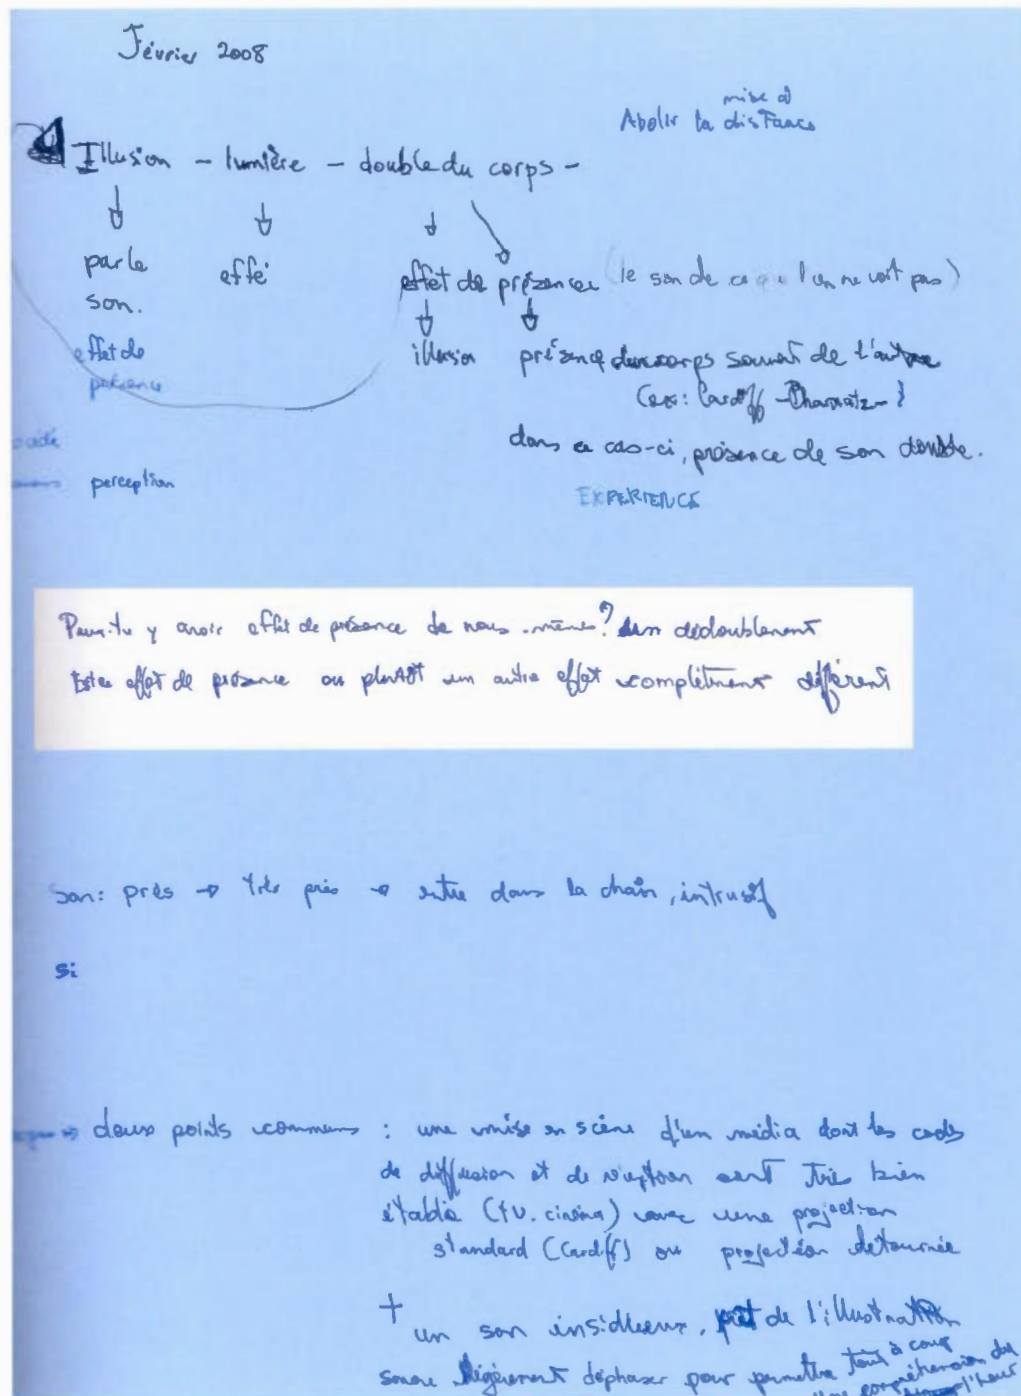 Février 2008
mise à
Abolir la distance
Illusion - lumière - double du corps -
par le
son.
effé
effet de présence (le son de ce que l'on ne voit pas)
effet de
présence
illusion
présence du corps sonnant de l'autre
(ex: Cardiff - )
dans ce cas-ci, présence de son double.
perception
EXPERIENCE
Peux-tu y avoir effet de présence de nous-même? un dédoublement
Est-ce effet de présence ou plutôt un autre effet complètement différent
Son: près → très près → entre dans la chair, intrusif
si
→ deux points communs : une mise en scène d'un média dont les codes
de diffusion et de réception sont très bien
établis (tv. cinéma) avec une projection
standard (Cardiff) ou projection détournée
+
un son insidieux, de l'illustration
sonore légèrement déphaser pour permettre tout à coup
compréhension du